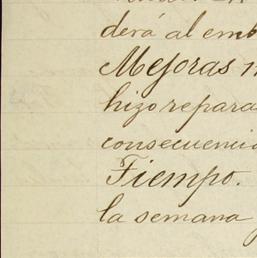 derá al emb
Mejoras
hizo repara
consecuencia
Tiempo.
la semana